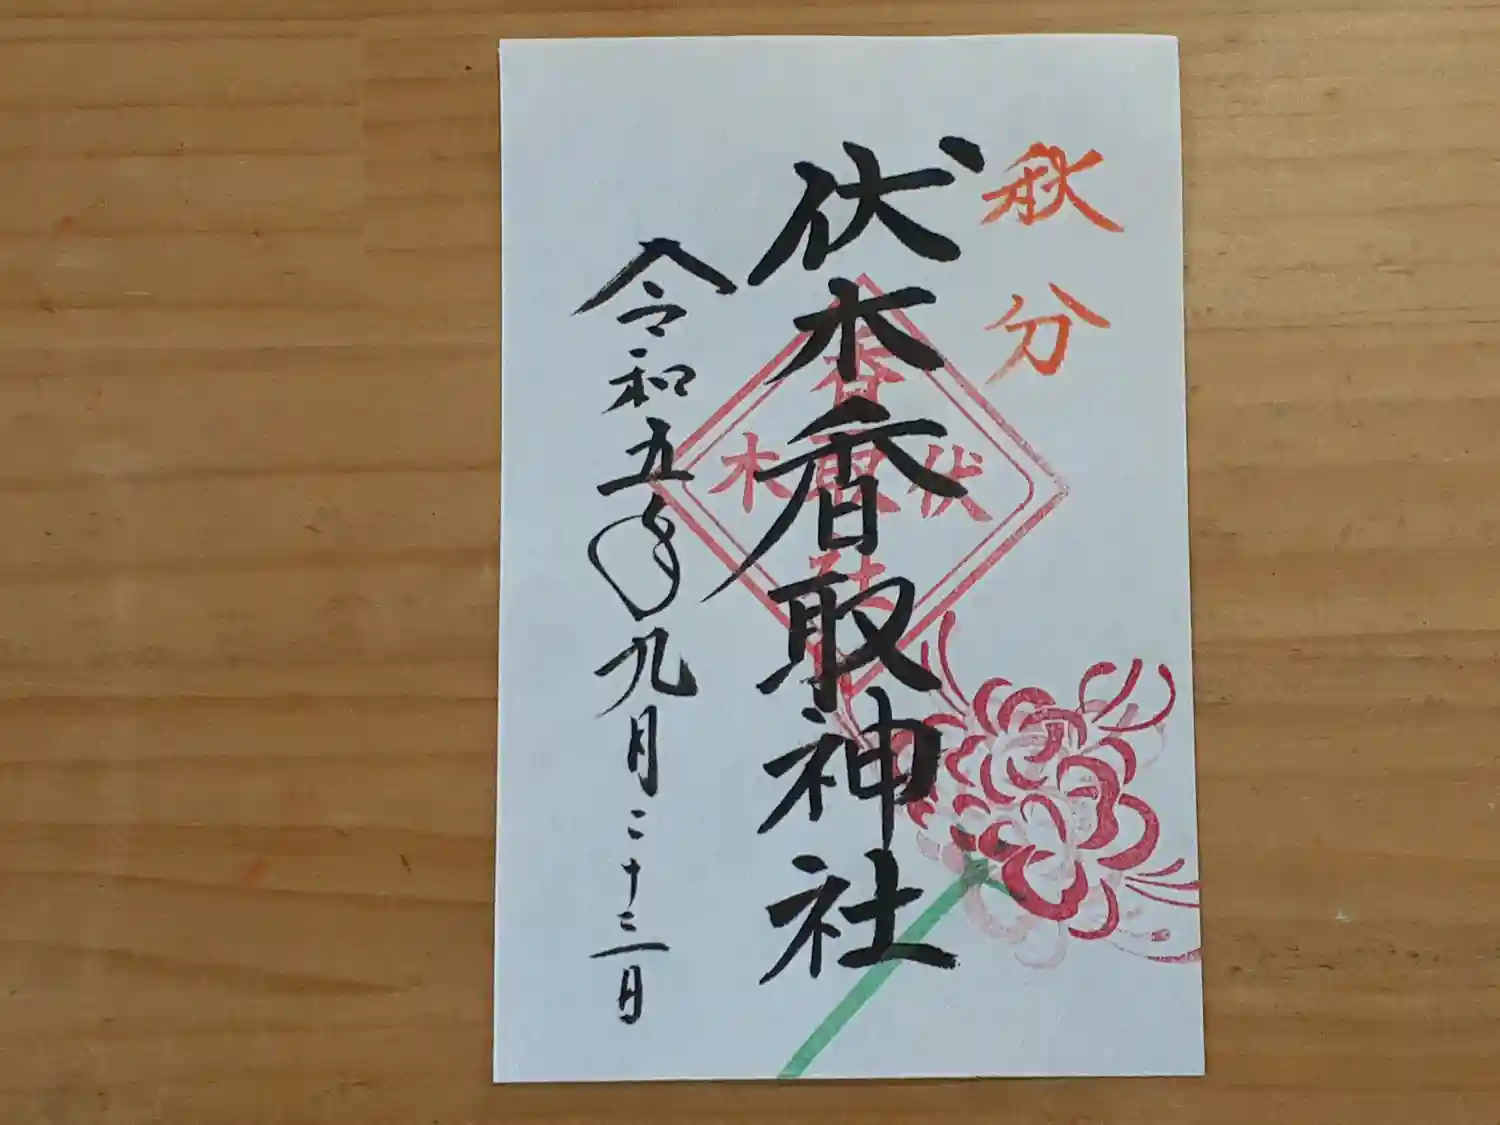 秋分
伏木香取神社
令和五年九月二十三日
伏
香取社
木